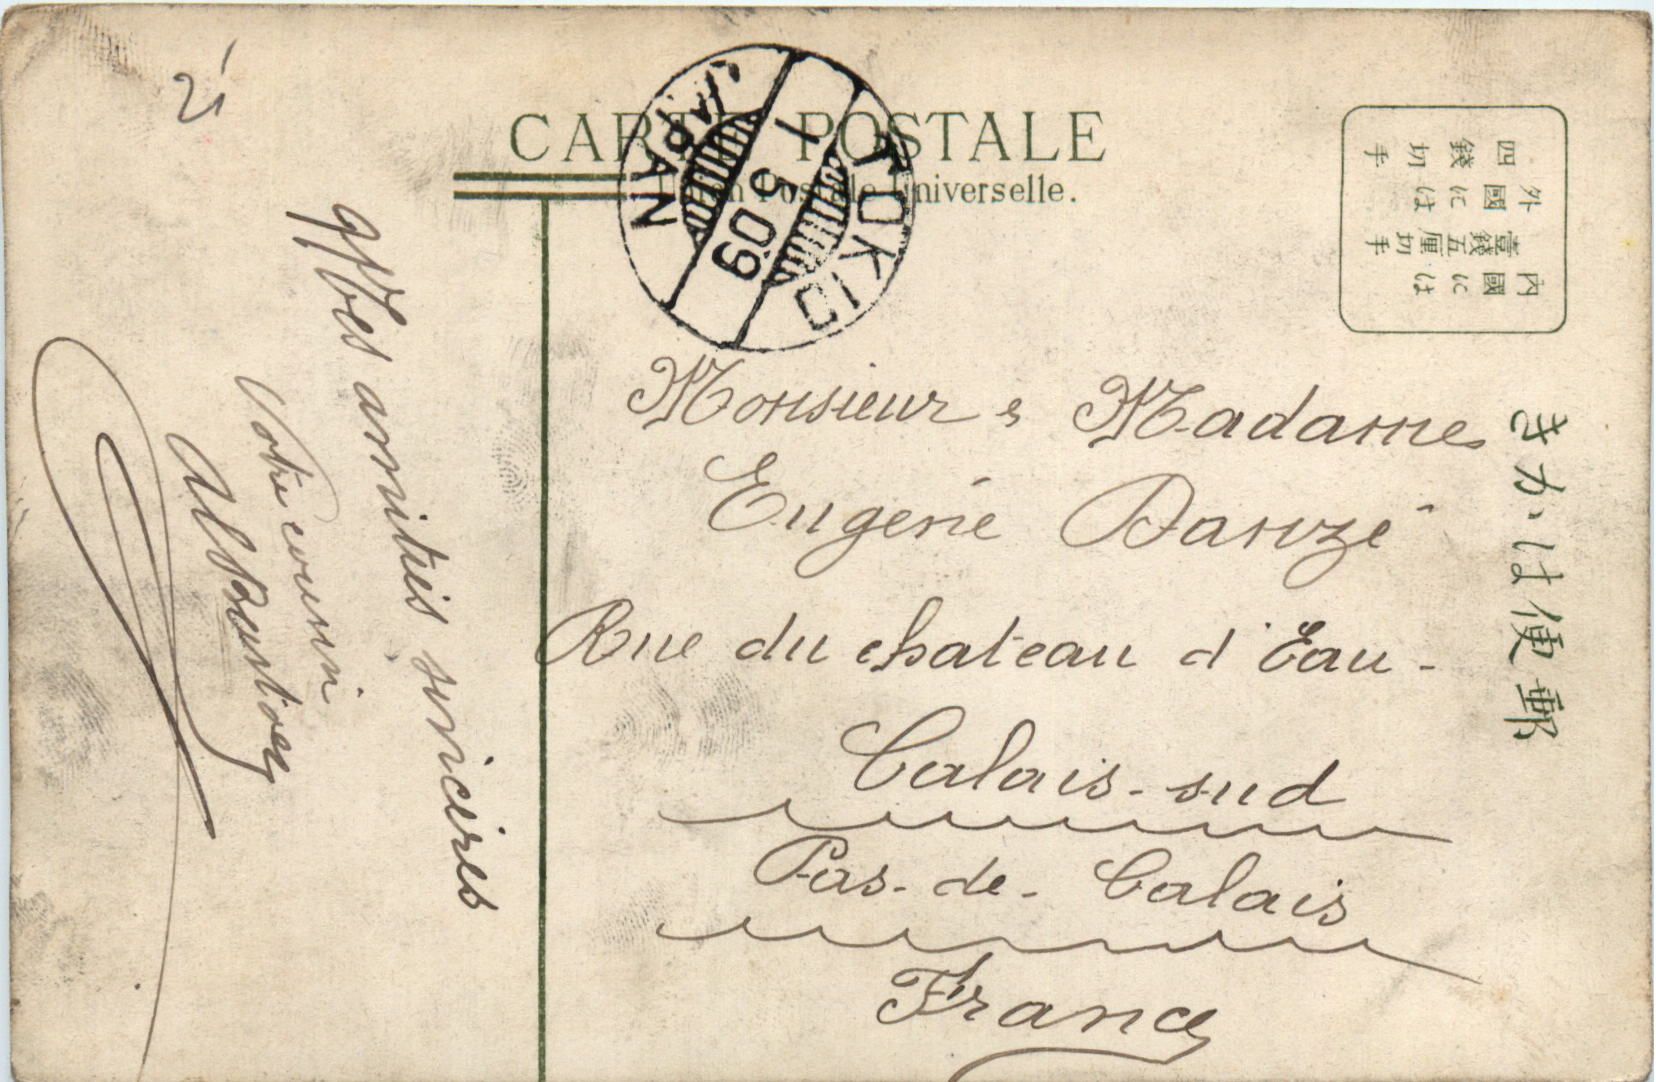 CARTE POSTALE
Union Postale Universelle.
TOKIO
1 5 09
JAPAN
内國には
壹錢五厘切手
外國には
四錢切手
郵便はがき
Monsieur & Madame
Eugène Danzé
Rue du chateau d'Eau -
Calais-sud
Pas-de-Calais
France
Mes amitiés sincères
Votre cousin